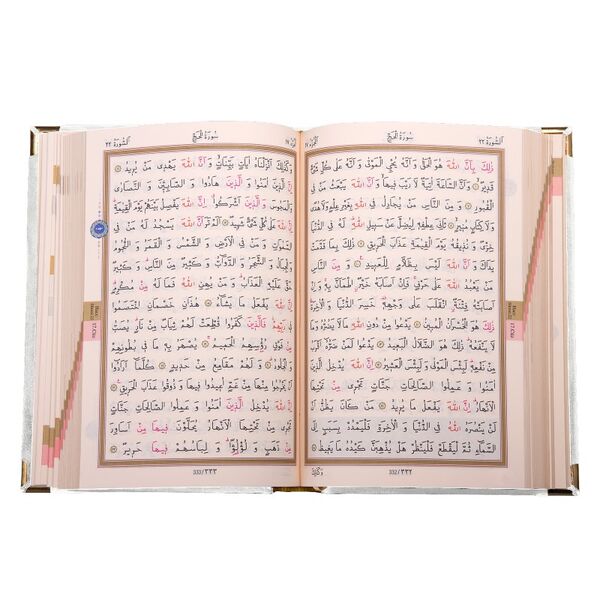 اَلسُّورَةُ ٢٢
سُورَةُ الْحَجِّ
اَلْجُزْءُ ١٧
ذٰلِكَ بِاَنَّ اللّٰهَ هُوَ الْحَقُّ وَاَنَّهُ يُحْيِ الْمَوْتٰى وَاَنَّهُ عَلٰى كُلِّ شَيْءٍ
قَدِيرٌ وَاَنَّ السَّاعَةَ اٰتِيَةٌ لَا رَيْبَ فِيهَا وَاَنَّ اللّٰهَ يَبْعَثُ مَنْ فِي
الْقُبُورِ وَمِنَ النَّاسِ مَنْ يُجَادِلُ فِي اللّٰهِ بِغَيْرِ عِلْمٍ وَلَا هُدًى
وَلَا كِتَابٍ مُنِيرٍ ثَانِيَ عِطْفِهِ لِيُضِلَّ عَنْ سَبِيلِ اللّٰهِ لَهُ فِي الدُّنْيَا
خِزْيٌ وَنُذِيقُهُ يَوْمَ الْقِيٰمَةِ عَذَابَ الْحَرِيقِ ذٰلِكَ بِمَا قَدَّمَتْ
يَدَاكَ وَاَنَّ اللّٰهَ لَيْسَ بِظَلَّامٍ لِلْعَبِيدِ وَمِنَ النَّاسِ
مَنْ يَعْبُدُ اللّٰهَ عَلٰى حَرْفٍ فَاِنْ اَصَابَهُ خَيْرٌۨ اطْمَاَنَّ بِهِ وَاِنْ
اَصَابَتْهُ فِتْنَةٌۨ انْقَلَبَ عَلٰى وَجْهِهِ خَسِرَ الدُّنْيَا وَالْاٰخِرَةَ
ذٰلِكَ هُوَ الْخُسْرَانُ الْمُبِينُ يَدْعُوا مِنْ دُونِ اللّٰهِ مَا لَا يَضُرُّهُ وَمَا
لَا يَنْفَعُهُ ذٰلِكَ هُوَ الضَّلَالُ الْبَعِيدُ يَدْعُوا لَمَنْ ضَرُّهُ اَقْرَبُ
مِنْ نَفْعِهِ لَبِئْسَ الْمَوْلٰى وَلَبِئْسَ الْعَشِيرُ اِنَّ اللّٰهَ يُدْخِلُ الَّذِينَ
اٰمَنُوا وَعَمِلُوا الصَّالِحَاتِ جَنَّاتٍ تَجْرِي مِنْ تَحْتِهَا
الْاَنْهَارُ اِنَّ اللّٰهَ يَفْعَلُ مَا يُرِيدُ مَنْ كَانَ يَظُنُّ اَنْ لَنْ
يَنْصُرَهُ اللّٰهُ فِي الدُّنْيَا وَالْاٰخِرَةِ فَلْيَمْدُدْ بِسَبَبٍ اِلَى
السَّمَاءِ ثُمَّ لْيَقْطَعْ فَلْيَنْظُرْ هَلْ يُذْهِبَنَّ كَيْدُهُ مَا يَغِيظُ
332/٣٣٢
وَكَذٰلِكَ
سُورَةُ الْحَجِّ
اَلسُّورَةُ ٢٢
وَكَذٰلِكَ اَنْزَلْنَاهُ اٰيَاتٍ بَيِّنَاتٍ وَاَنَّ اللّٰهَ يَهْدِي مَنْ يُرِيدُ
اِنَّ الَّذِينَ اٰمَنُوا وَالَّذِينَ هَادُوا وَالصَّابِئِينَ وَالنَّصَارٰى
وَالْمَجُوسَ وَالَّذِينَ اَشْرَكُوا اِنَّ اللّٰهَ يَفْصِلُ بَيْنَهُمْ يَوْمَ الْقِيٰمَةِ
اِنَّ اللّٰهَ عَلٰى كُلِّ شَيْءٍ شَهِيدٌ اَلَمْ تَرَ اَنَّ اللّٰهَ يَسْجُدُ لَهُ مَنْ فِي
السَّمٰوَاتِ وَمَنْ فِي الْاَرْضِ وَالشَّمْسُ وَالْقَمَرُ وَالنُّجُومُ
وَالْجِبَالُ وَالشَّجَرُ وَالدَّوَابُّ وَكَثِيرٌ مِنَ النَّاسِ وَكَثِيرٌ
حَقَّ عَلَيْهِ الْعَذَابُ وَمَنْ يُهِنِ اللّٰهُ فَمَا لَهُ مِنْ مُكْرِمٍ
اِنَّ اللّٰهَ يَفْعَلُ مَا يَشَاءُ هٰذَانِ خَصْمَانِ اخْتَصَمُوا
فِي رَبِّهِمْ فَالَّذِينَ كَفَرُوا قُطِّعَتْ لَهُمْ ثِيَابٌ مِنْ نَارٍ يُصَبُّ
مِنْ فَوْقِ رُؤُسِهِمُ الْحَمِيمُ يُصْهَرُ بِهِ مَا فِي بُطُونِهِمْ
وَالْجُلُودُ وَلَهُمْ مَقَامِعُ مِنْ حَدِيدٍ كُلَّمَا اَرَادُوا
اَنْ يَخْرُجُوا مِنْهَا مِنْ غَمٍّ اُعِيدُوا فِيهَا وَذُوقُوا عَذَابَ الْحَرِيقِ
اِنَّ اللّٰهَ يُدْخِلُ الَّذِينَ اٰمَنُوا وَعَمِلُوا الصَّالِحَاتِ جَنَّاتٍ
تَجْرِي مِنْ تَحْتِهَا الْاَنْهَارُ يُحَلَّوْنَ فِيهَا مِنْ اَسَاوِرَ
مِنْ ذَهَبٍ وَلُؤْلُؤًا وَلِبَاسُهُمْ فِيهَا حَرِيرٌ
333/٣٣٣